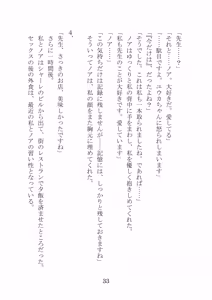 「先生…？」
「それと…ノア。大好きだ。愛してる」
「…駄目ですよ、ユウカちゃんに怒られてしまいます」
「『今だけは』、だったよね？」
「…そうですね。これは私も一本取られましたね。であれば…」
ノアはゆっくりと私の背中に手をまわし、私を優しく抱きしめてくれた。
「私も先生のことが大好きです。愛しています」
「ノア…」
「この気持ちだけは記録に残しませんが…記憶には、しっかりと残しておきますね」
そういってノアは、私の顔をまた胸元に埋めてくれた。
4.
「先生、さっきのお店、美味しかったですね」
さらに一時間後。
私とノアはシャーレのビルから出て、街のレストランで夕飯を済ませたところだった。
セックスの後の外食は、最近の私とノアの習い性となっている。
33